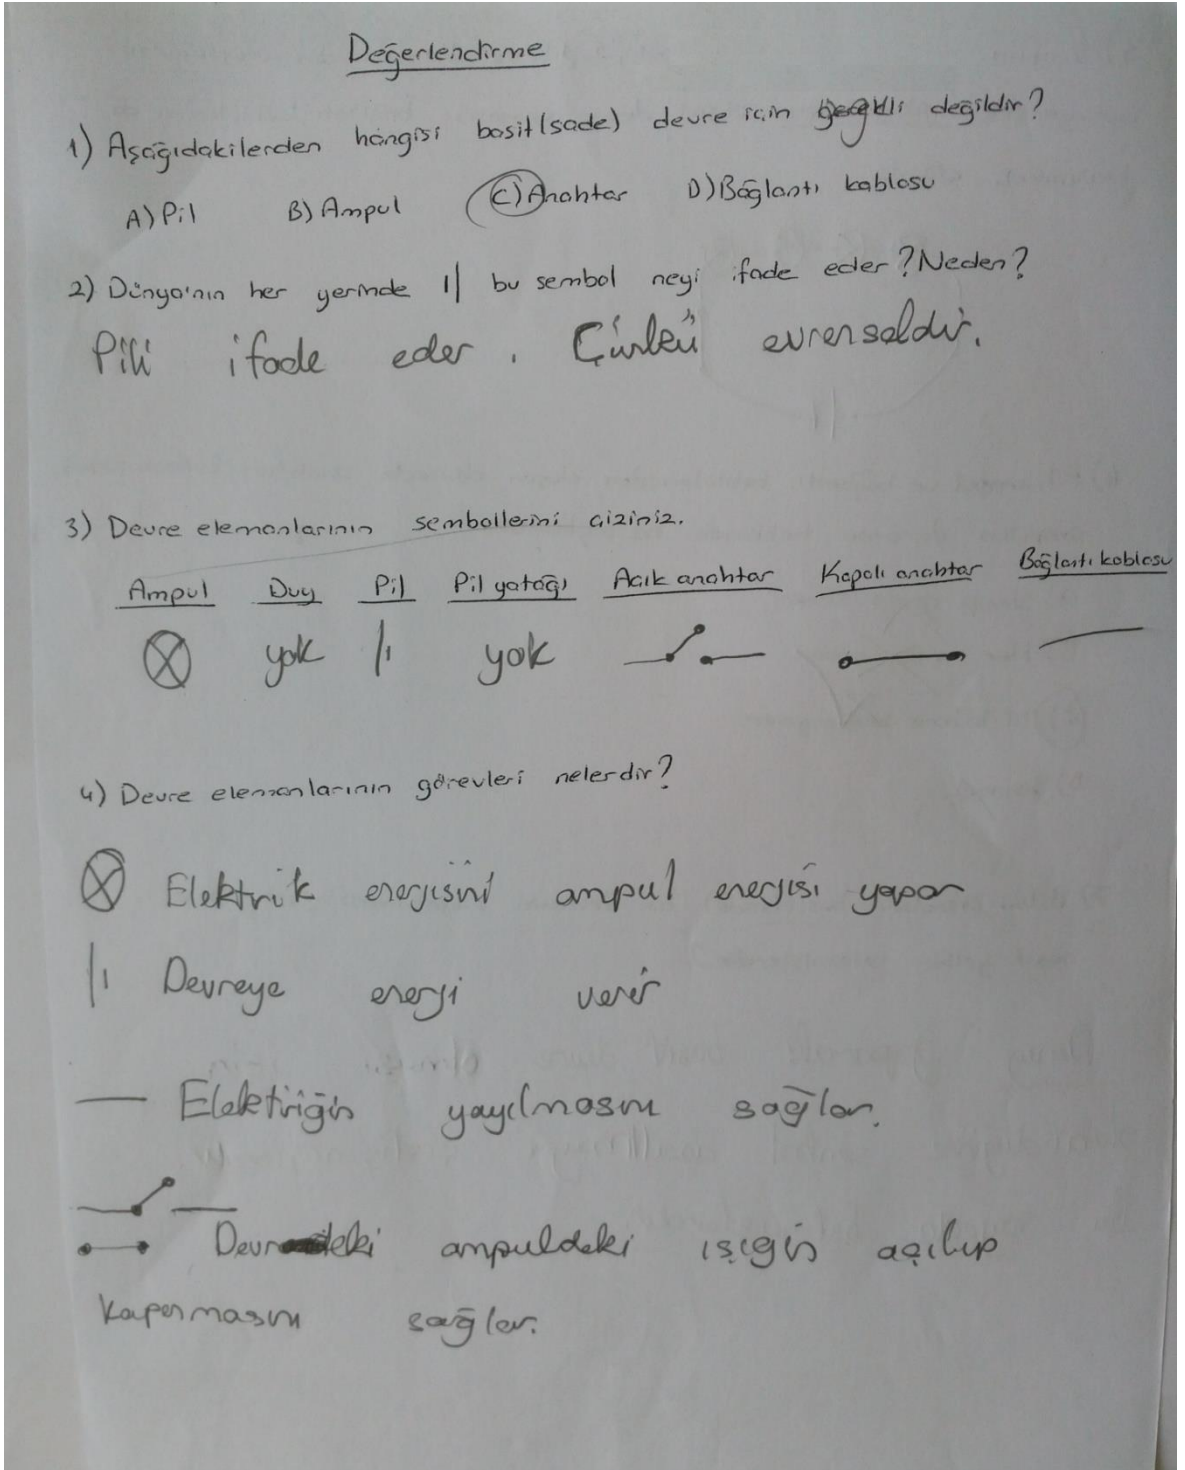 Değerlendirme
1) Aşağıdakilerden hangisi basit (sade) devre için gerekli değildir?
A) Pil B) Ampul C) Anahtar D) Bağlantı kablosu
2) Dünya'nın her yerinde ı| bu sembol neyi ifade eder? Neden?
Pili ifade eder. Çünkü evrenseldir.
3) Devre elemanlarının sembollerini çiziniz.
Ampul Duy Pil Pil yatağı Açık anahtar Kapalı anahtar Bağlantı kablosu
yok yok
4) Devre elemanlarının görevleri nelerdir?
Elektrik enerjisini ampul enerjisi yapar
Devreye enerji verir
Elektiriğin yayılmasını sağlar.
Devredeki ampuldeki ışıgın açılıp
kapanmasını sağlar.